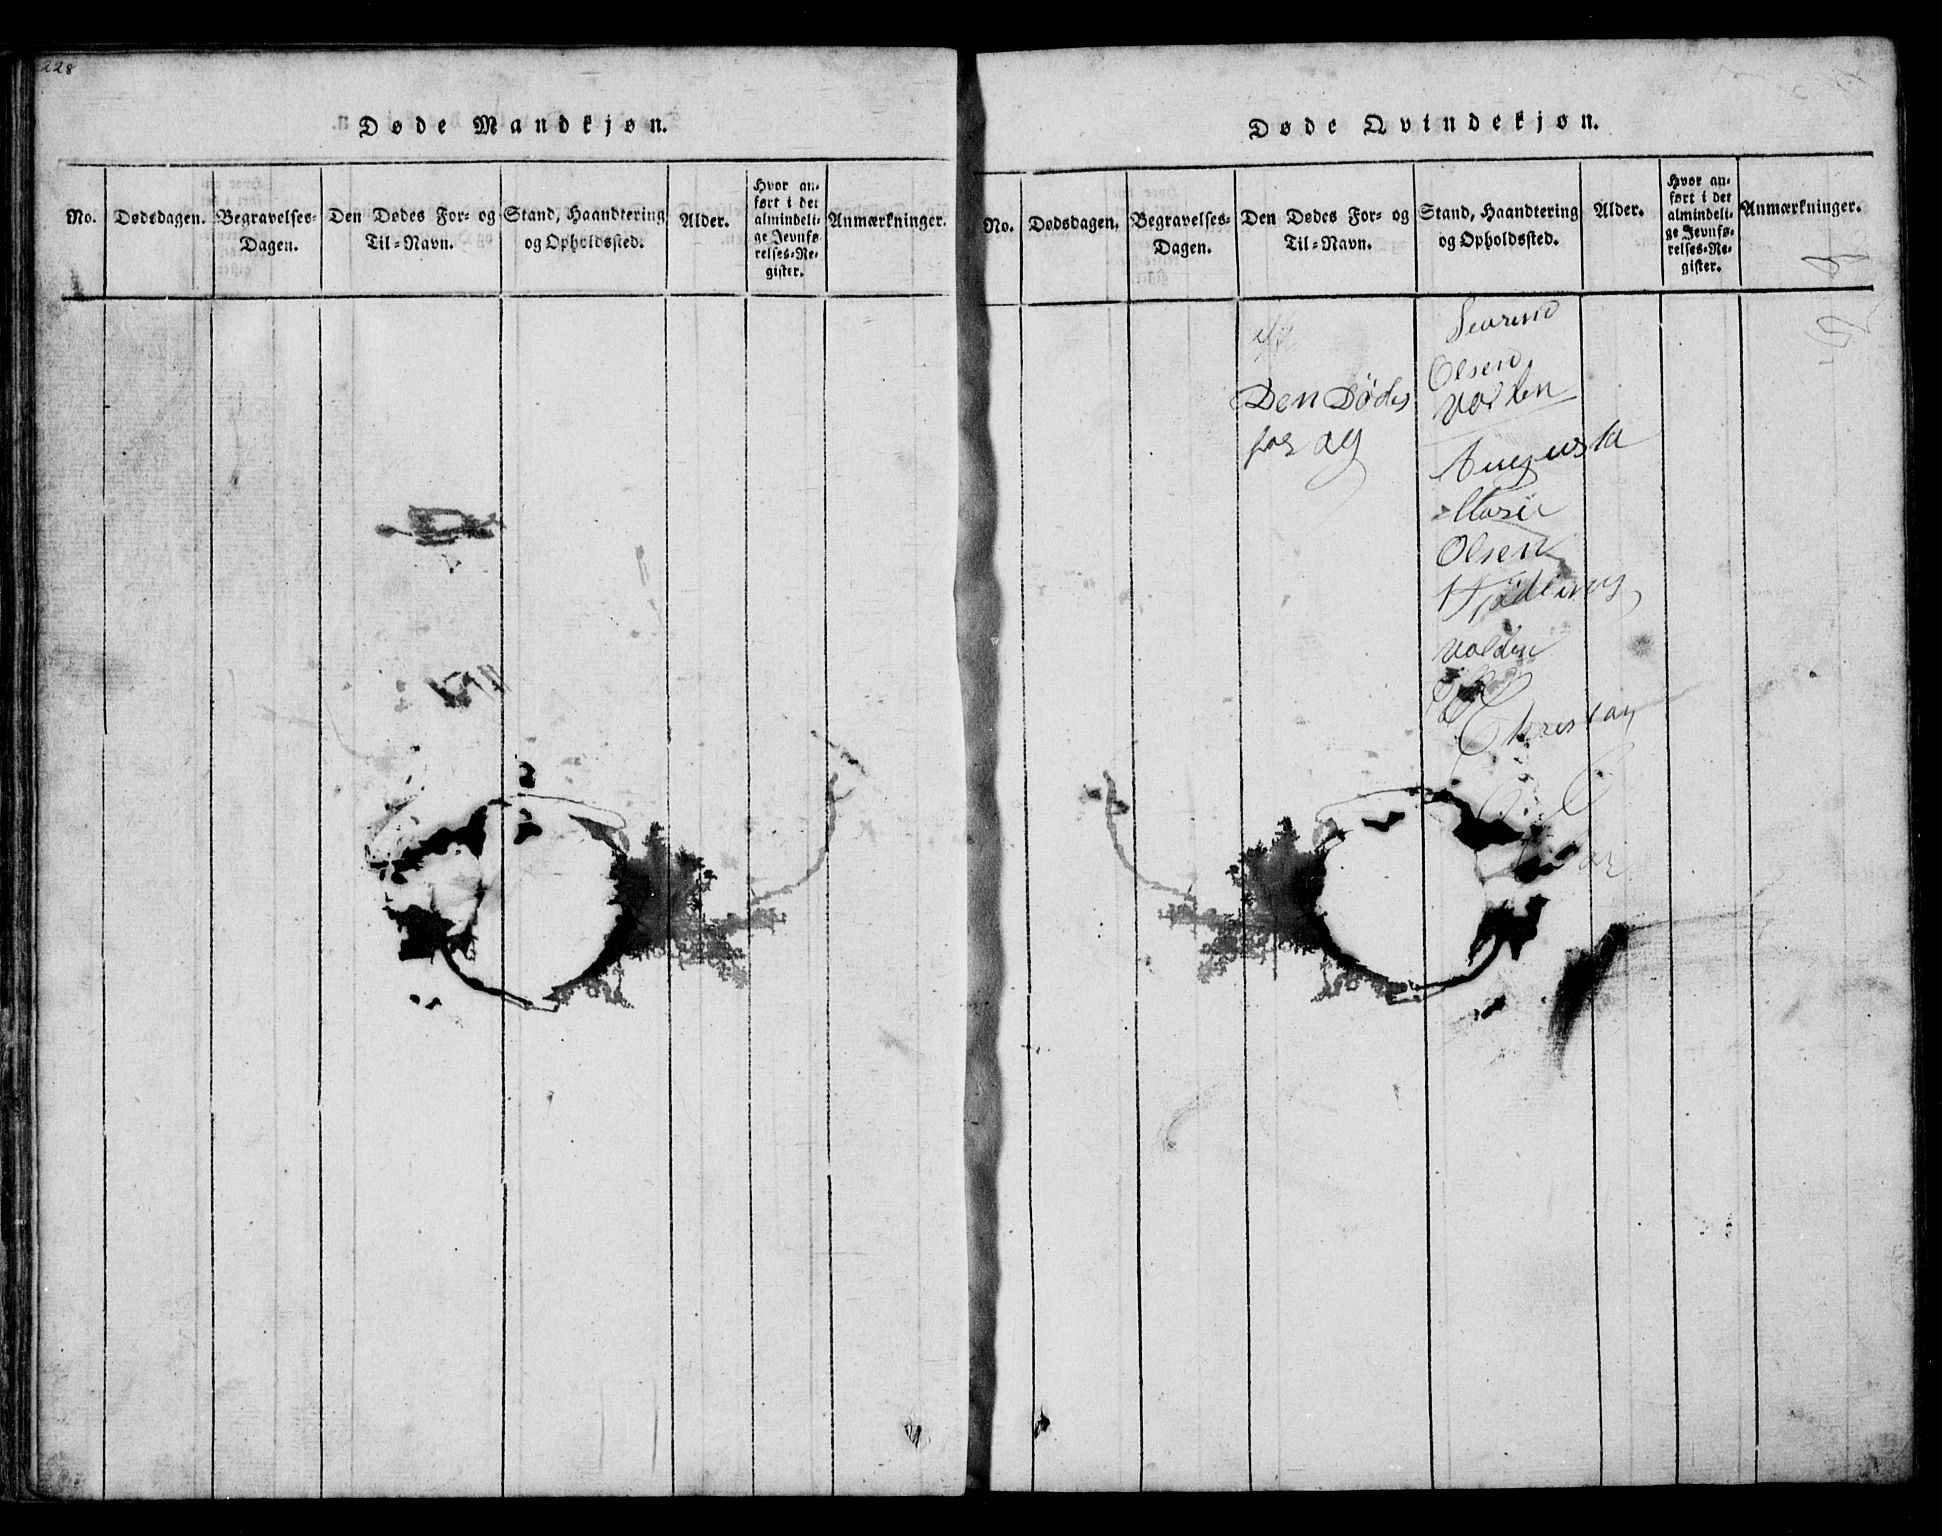 228
Døde Mandkjøn.
No.
Dødsdagen.
Begravelses-
Dagen.
Den Dødes For- og
Til-Navn.
Stand, Haandtering
og Opholdssted.
Alder.
Hvor an-
ført i det
almindeli-
ge Jevnfø-
relses-Re-
gister.
Anmærkninger.
Døde Qvindekjøn.
No.
Dødsdagen.
Begravelses-
Dagen.
Den Dødes For- og
Til-Navn.
Stand, Haandtering
og Opholdssted.
Alder.
Hvor an-
ført i det
almindeli-
ge Jevnfø-
relses-Re-
gister.
Anmærkninger.
Den Dødes
for og
Olsen
Augusta
Marie
Olsen
Valden